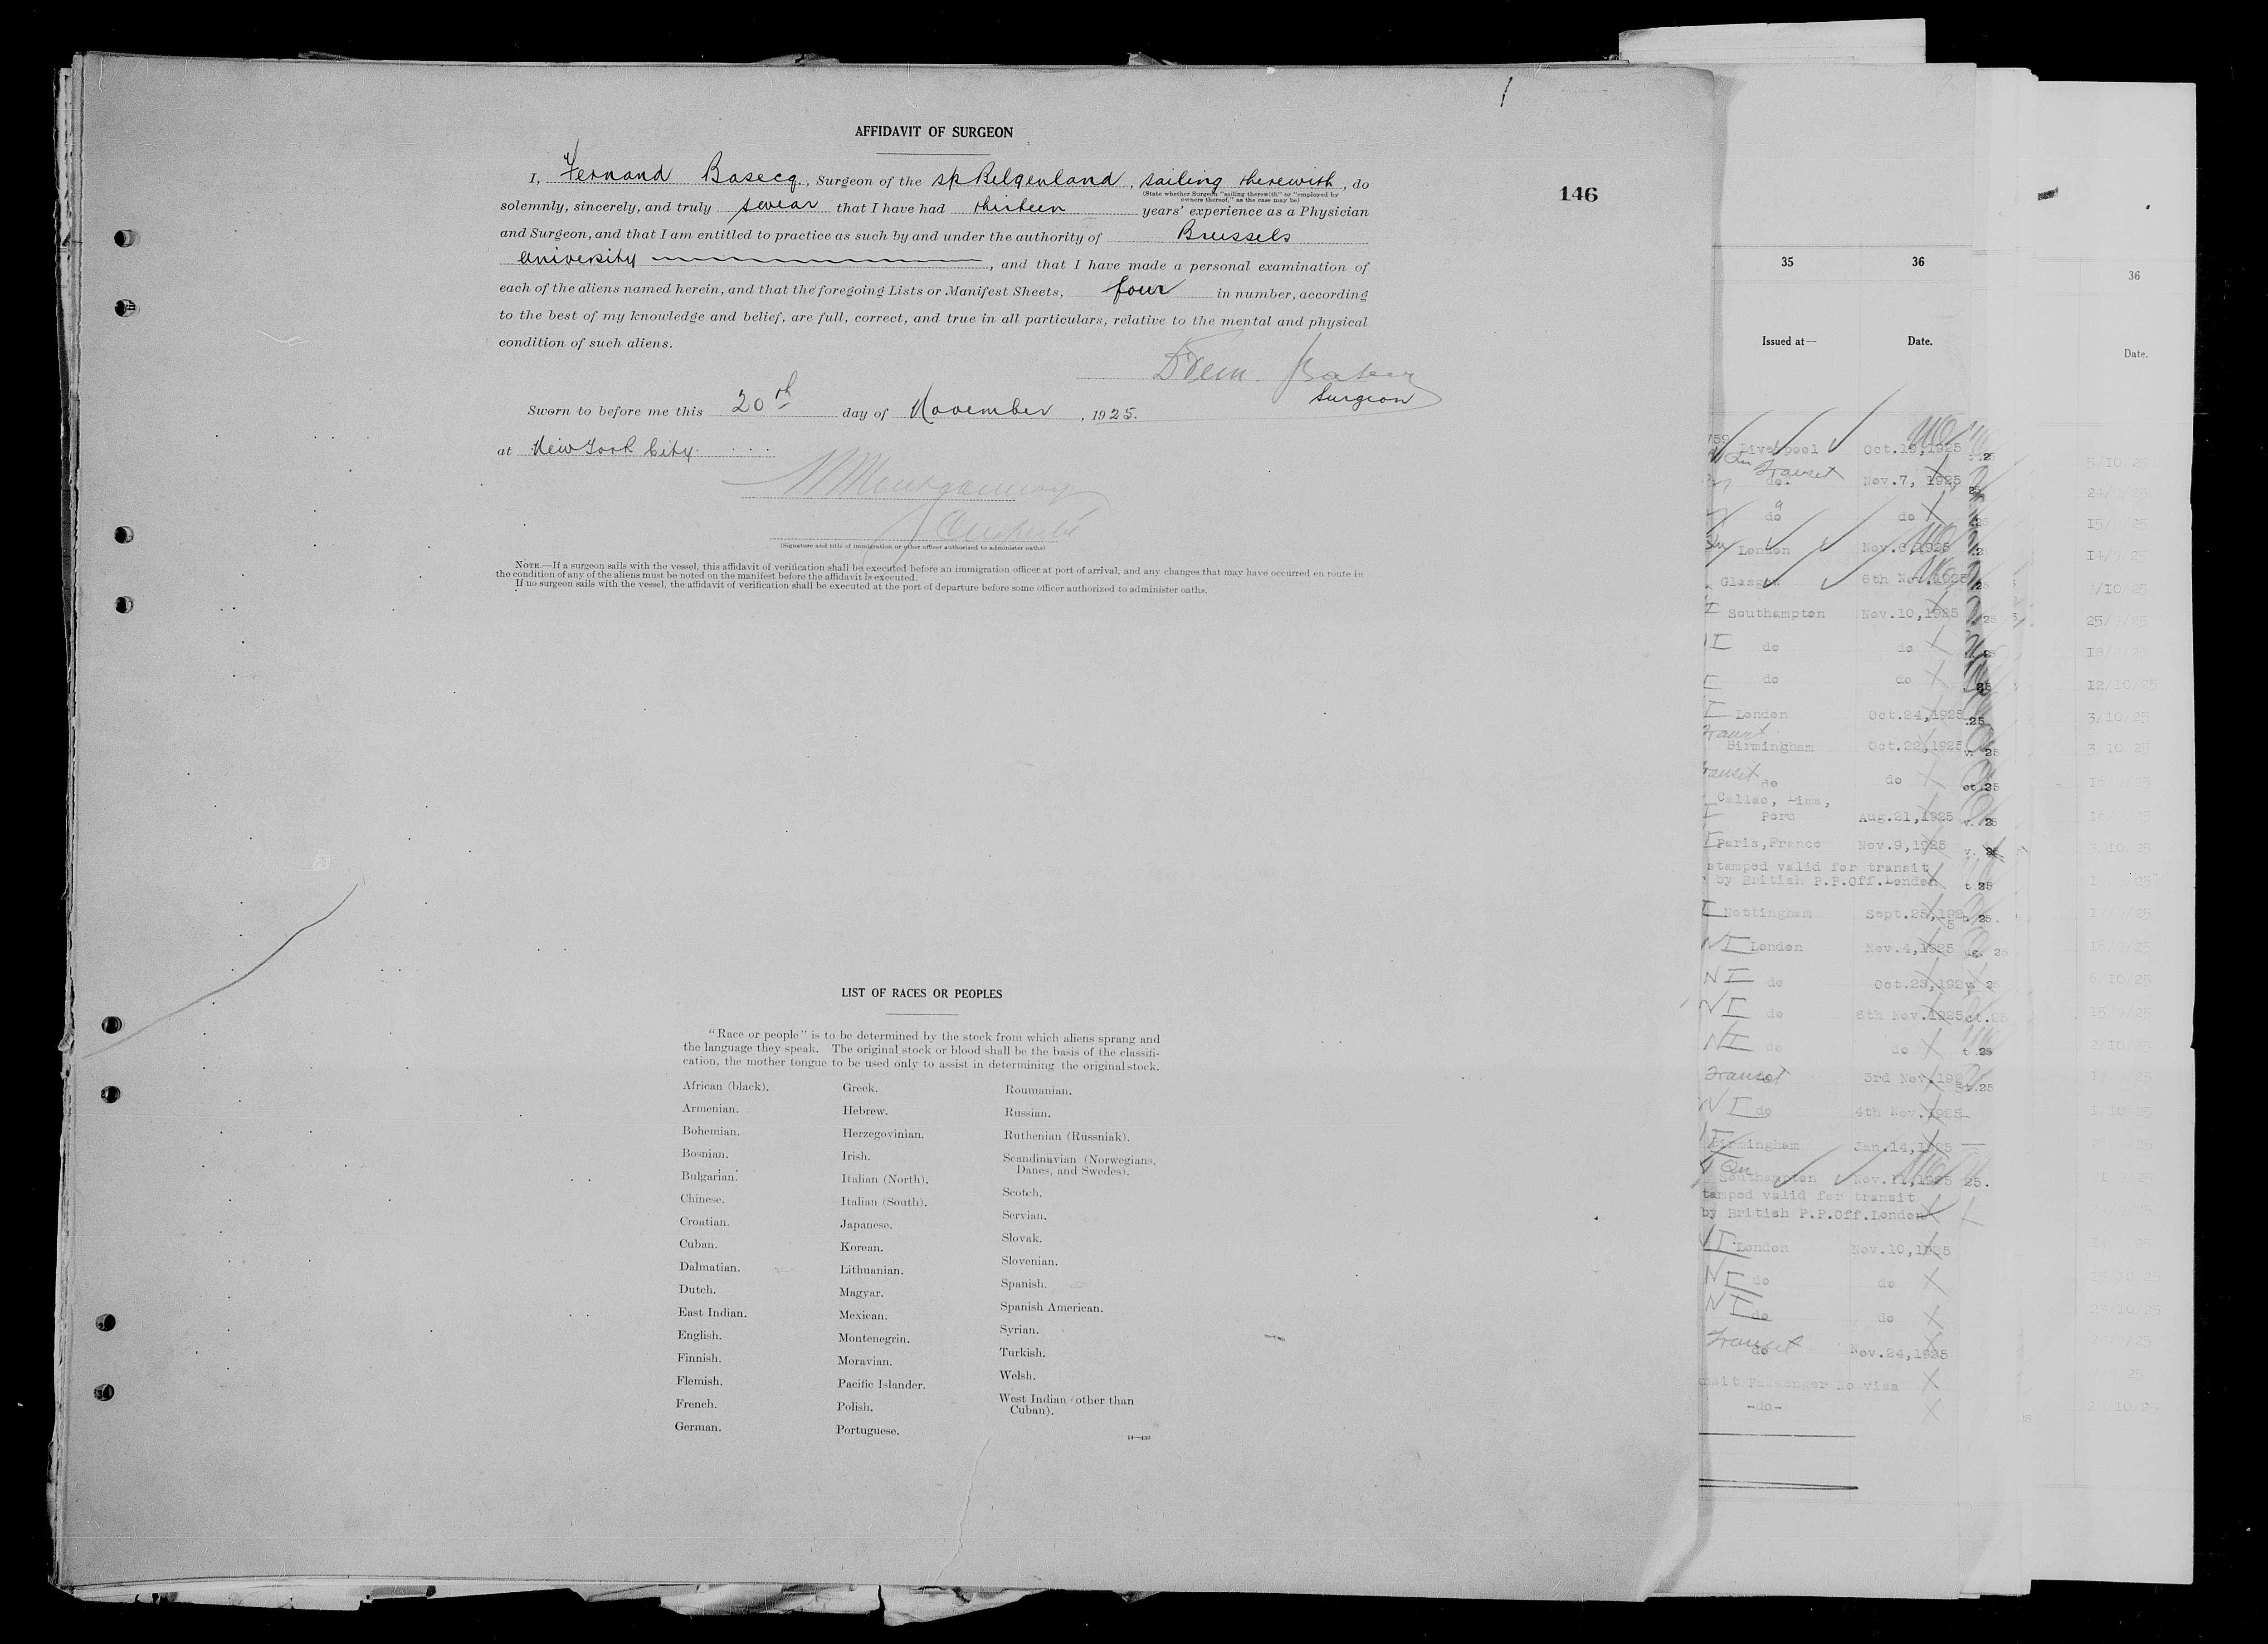 1
AFFIDAVIT OF SURGEON
146
I, Fernand Basecq, Surgeon of the ss Belgenland, sailing therewith, do
(State whether Surgeon "sailing therewith" or "employed by
owners thereof," as the case may be)
solemnly, sincerely, and truly swear that I have had thirteen years' experience as a Physician
and Surgeon, and that I am entitled to practice as such by and under the authority of Brussels
University, and that I have made a personal examination of
each of the aliens named herein, and that the foregoing Lists or Manifest Sheets, four in number, according
to the best of my knowledge and belief, are full, correct, and true in all particulars, relative to the mental and physical
condition of such aliens.
Surgeon
Sworn to before me this 20th day of November, 1925.
at New York City.
(Signature and title of immigration or other officer authorized to administer oaths)
NOTE.—If a surgeon sails with the vessel, this affidavit of verification shall be executed before an immigration officer at port of arrival, and any changes that may have occurred en route in
the condition of any of the aliens must be noted on the manifest before the affidavit is executed.
If no surgeon sails with the vessel, the affidavit of verification shall be executed at the port of departure before some officer authorized to administer oaths.
LIST OF RACES OR PEOPLES
"Race or people" is to be determined by the stock from which aliens sprang and
the language they speak. The original stock or blood shall be the basis of the classifi-
cation, the mother tongue to be used only to assist in determining the original stock.
African (black).
Armenian.
Bohemian.
Bosnian.
Bulgarian.
Chinese.
Croatian.
Cuban.
Dalmatian.
Dutch.
East Indian.
English.
Finnish.
Flemish.
French.
German.
Greek.
Hebrew.
Herzegovinian.
Irish.
Italian (North).
Italian (South).
Japanese.
Korean.
Lithuanian.
Magyar.
Mexican.
Montenegrin.
Moravian.
Pacific Islander.
Polish.
Portuguese.
Roumanian.
Russian.
Ruthenian (Russniak).
Scandinavian (Norwegians,
Danes, and Swedes).
Scotch.
Servian.
Slovak.
Slovenian.
Spanish.
Spanish American.
Syrian.
Turkish.
Welsh.
West Indian (other than
Cuban).
14—430
35 36
Issued at— Date.
Liverpool Oct.19,1925
Transit do. Nov.7, 1925
do do
London Nov.6,1925
Glasgow 6th Nov.1925
Southampton Nov.10,1925
do do
do do
London Oct.24,1925
Birmingham Oct.22,1925
do do
Callao, Lima,
Peru Aug.21,1925
Paris,France Nov.9,1925
stamped valid for transit
by British P.P.Off.London
Nottingham Sept.25,192
NI London Nov.4,1925
NI do Oct.23,192
NI do 6th Nov.1925
NI do do
Transit 3rd Nov.192
NI do 4th Nov.1925
Birmingham Jan.14,1925
Southampton Nov.11,1925
tamped valid for transit
by British P.P.Off.London
London Nov.10,1925
NI do do
NI do do
Transit do Nov.24,1925
Passenger No visa
-do-
36
Date.
5/10/25
7/10/25
12/10/25
3/10/25
6/10/25
2/10/25
1/10/25